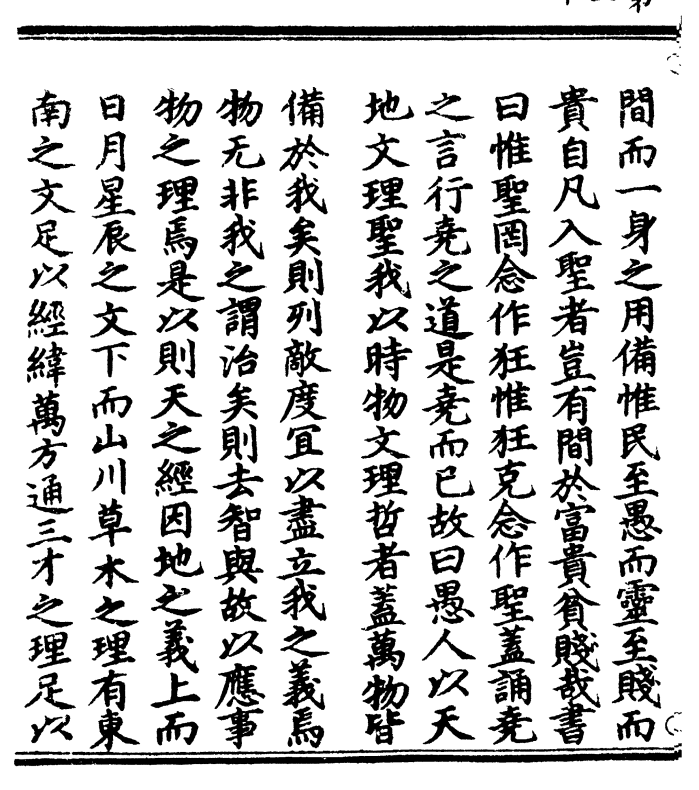 間而一身之用備惟民至愚而靈至賤而
貴自凡入聖者豈有間於富貴貧賤哉書
曰惟聖罔念作狂惟狂克念作聖蓋誦堯
之言行堯之道是堯而已故曰愚人以天
地文理聖我以時物文理哲者蓋萬物皆
備於我矣則列敵度宜以盡立我之義焉
物无非我之謂治矣則去智與故以應事
物之理焉是以則天之經因地之義上而
日月星辰之文下而山川草木之理有東
南之文足以經緯萬方通三才之理足以